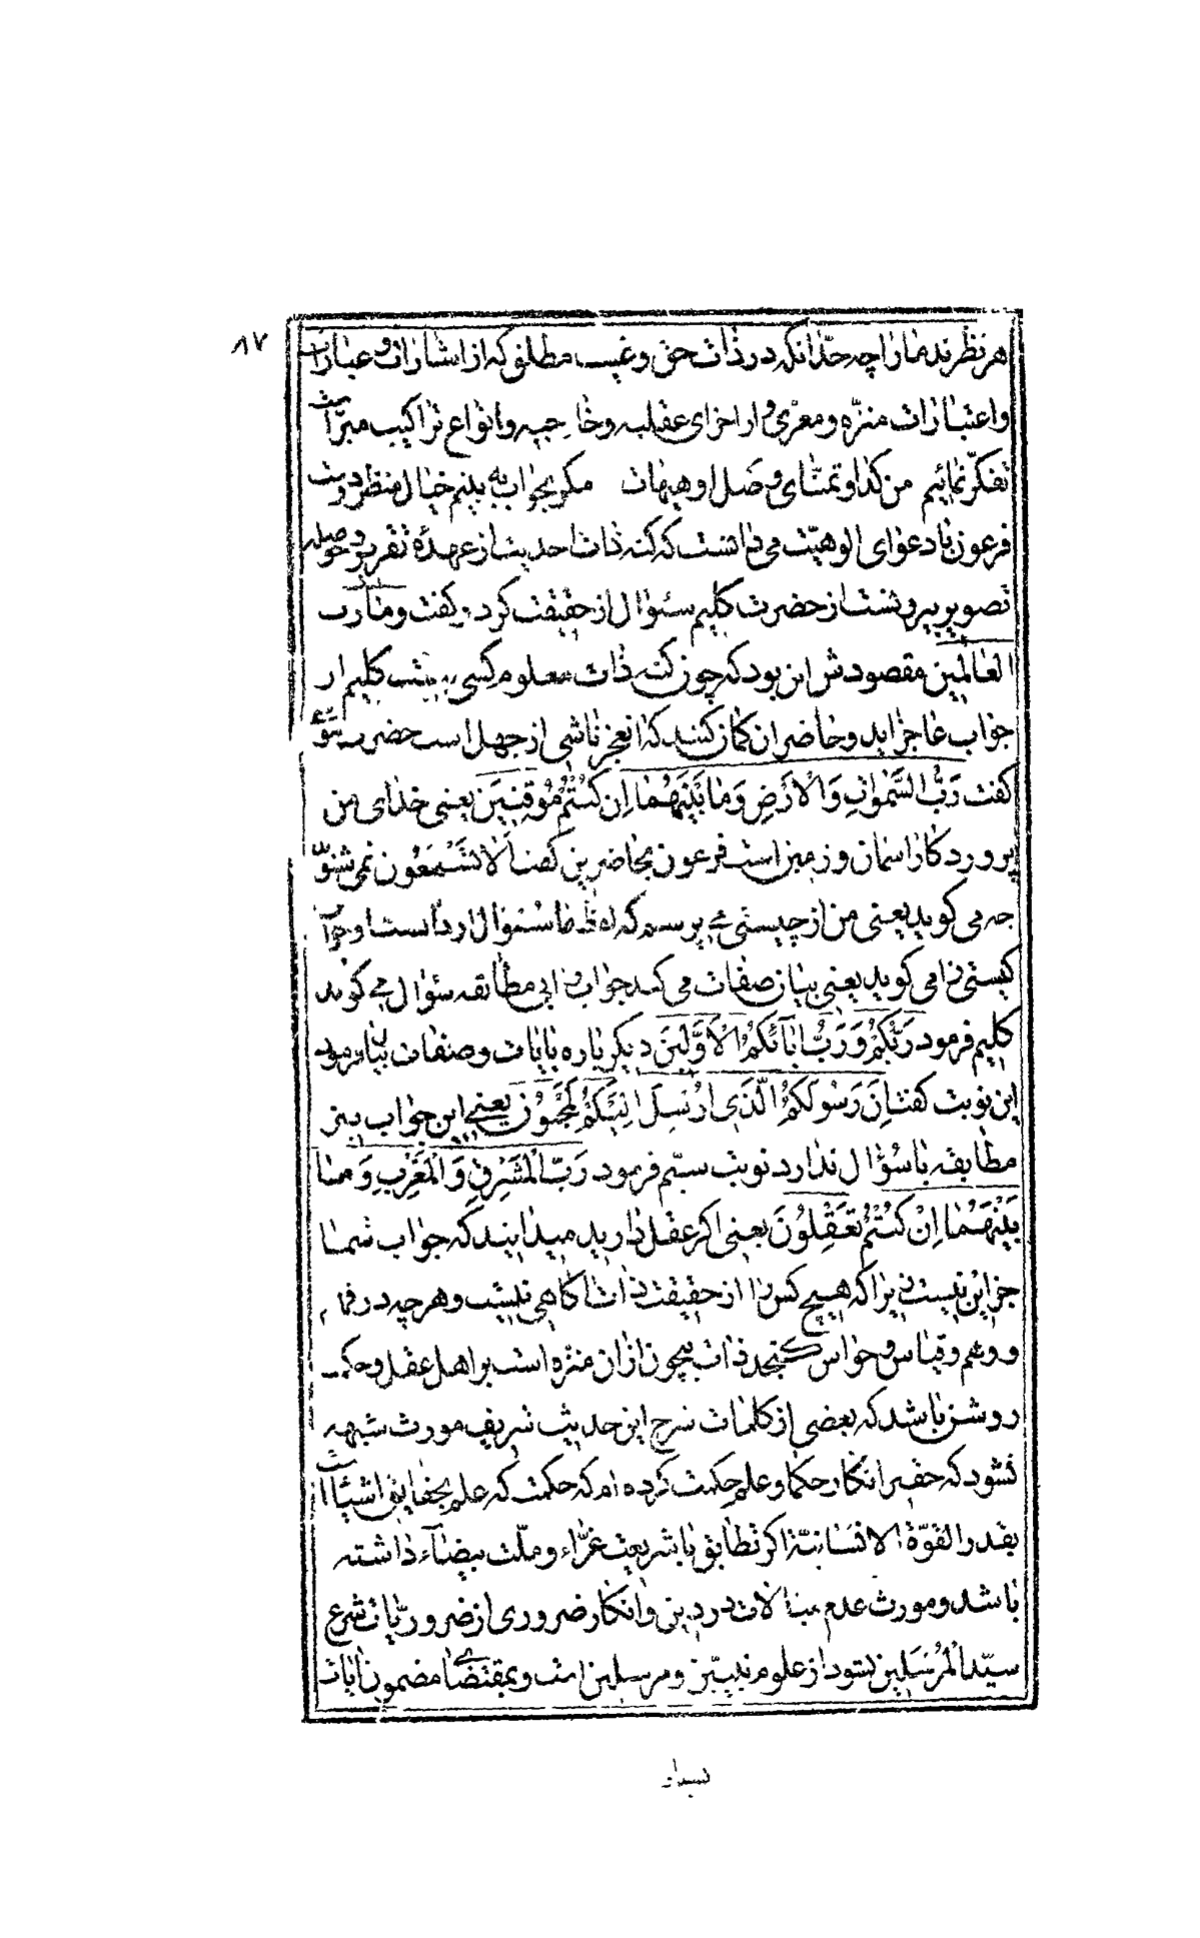 ۸۷
هر نظرند ما را چه حد انکه در ذات حق و غیب مطلق که از اشارات و عبارات
و اعتبارات منزّه و معرّی و از اجزای عقلیه و خارجیه و انواع تراکیب مبرّاست
تفکّر نمائیم من کدا و تمنّای وصل او هیهات مکر بخواب به بینم خیال منظر دوست
فرعون با دعوای الوهیّت می دانست که کنه ذات احدیت از عهدهٔ تقریر و حوصله
تصویر بیرونست از حضرت کلیم سئوال از حقیقت کرد و کفت و ما رب
العالمین مقصودش این بود که چون کنه ذات معلوم کسی نیست کلیم از
جواب عاجز اید و حاضران کمان کنند که این عجز ناشی از جهل است حضرت
کفت رَبُّ السَّمٰواتِ وَالْاَرْضِ وَمٰا بَیْنَهُمٰا اِن کُنْتُمْ مُوقِنِینَ یعنی خدای من
پروردکار اسمان و زمین است فرعون بحاضرین کفت اَلا تَسْتَمِعُون نمی شنوید
چه می کوید یعنی من از چیستی می پرسم که سئوال از ذاتست او جواب
کیستی را می کوید یعنی بیان صفات می کند جواب مطابقه سئوال می کوید
کلیم فرمود رَبُّکُمْ وَرَبُّ اٰبٰائِکُمُ الْاَوَّلِینَ دیکر باره بایات و صفات بیان فرمود
این نوبت کفت اِنَّ رَسُولَکُمُ الَّذِی اُرْسِلَ اِلَیْکُمْ لَمَجْنُونٌ یعنی این جواب نیز
مطابقه با سؤال ندارد نوبت سیّم فرمود رَبُّ الْمَشْرِقِ وَالْمَغْرِبِ وَمٰا
بَیْنَهُمٰا اِنْ کُنْتُمْ تَعْقِلُونَ یعنی اکر عقل دارید میدانید که جواب شما
جز این نیست زیرا که هیچ کس را از حقیقت ذات اکاهی نیست و هرچه در فهم
و وهم و قیاس و حواس کنجد ذات بیچون از ان منزه است بر اهل عقل و حکمت
روشن باشد که بعضی از کلمات شرح این حدیث شریف مورث شبهه
نشود که حقیر انکار حکما و علم حکمت کرده ام که حکمت که علم بحقایق اشیاء است
بقدر القوّة الانسانیّة اکر تطابق با شریعت غرّاء و ملّت بیضآء داشته
باشد و مورث عدم مبالات در دین و انکار ضروری از ضروریّات شرع
سیّد المرسلین نشود از علوم نبیّین و مرسلین است و بمقتضای مضمون ایات